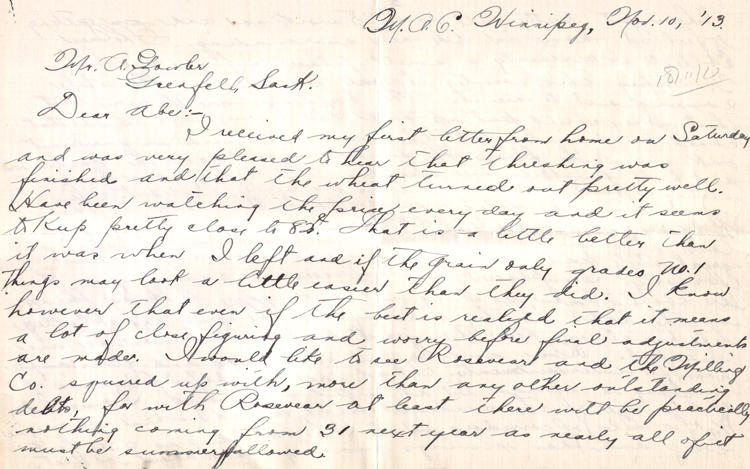 M.A.C. Winnipeg, Nov. 10, '13.
Mr. A. Gowler
Grenfell, Sask.
Dear Abe:-
I received my first letter from home on Saturday
and was very pleased to hear that threshing was
finished and that the wheat turned out pretty well.
Have been watching the price every day and it seems
to kup pretty close to 83. That is a little better than
it was when I left and if the grain only grades No. 1
things may look a little easier than they did. I know
however that even if the best is realized that it means
a lot of close figuring and worry before final adjustments
are made. I would like to see Rosevear and the Milling
Co. squared up with, more than any other outstanding
debts, for with Rosevear at least there will be practically
nothing coming from 31 next year as nearly all of it
must be summerfallowed.